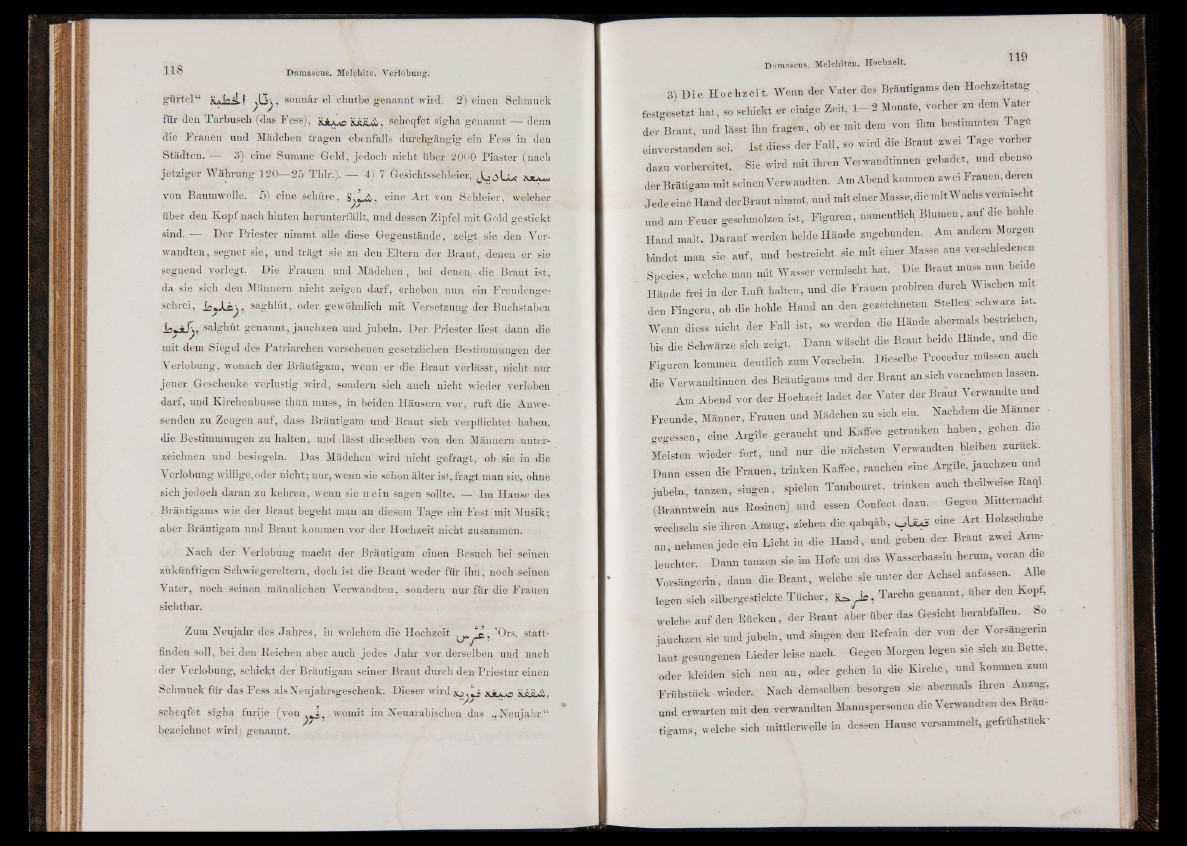 118
Damascus. Melchite. Verlobung.
gürtel“ زنّار الخطبة, sonnâr el chutbe genannt wird. 2) einen Schmuck
für den Tarbusch (das Fess), شقفة صيغة, scheqfet sîgha genannt — denn
die Frauen und Mädchen tragen ebenfalls durchgängig ein Fess in den
Städten. — 3) eine Summe Geld, jedoch nicht über 2000 Piaster (nach
jetziger Währung 120—25 Thlr.). — 4) 7 Gesichtsschleier, سبعة مناديل
von Baumwolle. 5) eine schûre, شورة, eine Art von Schleier, welcher
über den Kopf nach hinten herunterfällt, und dessen Zipfel mit Gold gestickt
sind. — Der Priester nimmt alle diese Gegenstände, zeigt sie den Ver-
wandten, segnet sie, und trägt sie zu den Eltern der Braut, denen er sie
segnend vorlegt. Die Frauen und Mädchen, bei denen die Braut ist,
da sie sich den Männern nicht zeigen darf, erheben nun ein Freudenge-
schrei, زغلوط, saghlût, oder gewöhnlich mit Versetzung der Buchstaben
زلغوط, salghût genannt, jauchzen und jubeln. Der Priester liest dann die
mit dem Siegel des Patriarchen versehenen gesetzlichen Bestimmungen der
Verlobung, wonach der Bräutigam, wenn er die Braut verlässt, nicht nur
jener Geschenke verlustig wird, sondern sich auch nicht wieder verloben
darf, und Kirchenbusse thun muss, in beiden Häusern vor, ruft die Anwe-
senden zu Zeugen auf, dass Bräutigam und Braut sich verpflichtet haben,
die Bestimmungen zu halten, und lässt dieselben von den Männern unter-
zeichnen und besiegeln. Das Mädchen wird nicht gefragt, ob sie in die
Verlobung willige, oder nicht; nur, wenn sie schon älter ist, fragt man sie, ohne
sich jedoch daran zu kehren, wenn sie nein sagen sollte. — Im Hause des
Bräutigams wie der Braut begeht man an diesem Tage ein Fest mit Musik;
aber Bräutigam und Braut kommen vor der Hochzeit nicht zusammen.
Nach der Verlobung macht der Bräutigam einen Besuch bei seinen
zukünftigen Schwiegereltern, doch ist die Braut weder für ihn, noch seinen
Vater, noch seinen männlichen Verwandten, sondern nur für die Frauen
sichtbar.
Zum Neujahr des Jahres, in welchem die Hochzeit عُرْس, 'Ors, statt-
finden soll, bei den Reichen aber auch jedes Jahr vor derselben und nach
der Verlobung, schickt der Bräutigam seiner Braut durch den Priestur einen
Schmuck für das Fess als Neujahrsgeschenk. Dieser wird شقفة صيغة فوريه,
scheqfet sîgha furije (von فور, womit im Neuarabischen das „Neujahr“
bezeichnet wird) genannt.
Damascus. Melchiten. Hochzeit.
119
3) Die Hochzeit. Wenn der Vater des Bräutigams den Hochzeitstag
festgesetzt hat, so schickt er einige Zeit, 1—2 Monate, vorher zu dem Vater
der Braut, und lässt ihn fragen, ob er mit dem von ihm bestimmten Tage
einverstanden sei. Ist diess der Fall, so wird die Braut zwei Tage vorher
dazu vorbereitet. Sie wird mit ihren Verwandtinnen gebadet, und ebenso
der Brätigam mit seinen Verwandten. Am Abend kommen zwei Frauen, deren
Jede eine Hand der Braut nimmt, und mit einer Masse, die mit Wachs vermischt
und am Feuer geschmolzen ist, Figuren, namentlich Blumen, auf die hohle
Hand malt. Darauf werden beide Hände zugebunden. Am andern Morgen
bindet man sie auf, und bestreicht sie mit einer Masse aus verschiedenen
Species, welche man mit Wasser vermischt hat. Die Braut muss nun beide
Hände frei in der Luft halten, und die Frauen probiren durch Wischen mit
den Fingern, ob die hohle Hand an den gezeichneten Stellen schwarz ist.
Wenn diess nicht der Fall ist, so werden die Hände abermals bestrichen,
bis die Schwärze sich zeigt. Dann wäscht die Braut beide Hände, und die
Figuren kommen deutlich zum Vorschein. Dieselbe Procedur müssen auch
die Verwandtinnen des Bräutigams und der Braut an sich vornehmen lassen.
Am Abend vor der Hochzeit ladet der Vater der Braut Verwandte und
Freunde, Männer, Frauen und Mädchen zu sich ein. Nachdem die Männer
gegessen, eine Argîle geraucht und Kaffee getrunken haben, gehen die
Meisten wieder fort, und nur die nächsten Verwandten bleiben zurück.
Dann essen die Frauen, trinken Kaffee, rauchen eine Argîle, jauchzen und
jubeln, tanzen, singen, spielen Tambouret, trinken auch theilweise Raqi
(Branntwein aus Rosinen) und essen Confect dazu. Gegen Mitternacht
wechseln sie ihren Anzug, ziehen die qabqâb, قبقاب eine Art Holzschuhe
an, nehmen jede ein Licht in die Hand, und geben der Braut zwei Arm-
leuchter. Dann tanzen sie im Hofe um das Wasserbassin herum, voran die
Vorsängerin, dann die Braut, welche sie unter der Achsel anfassen. Alle
legen sich silbergestickte Tücher, طرحة, Tarcha genannt, über den Kopf,
welche auf den Rücken, der Braut aber über das Gesicht herabfallen. So
jauchzen sie und jubeln, und singen den Refrain der von der Vorsängerin
laut gesungenen Lieder leise nach. Gegen Morgen legen sie sich zu Bette,
oder kleiden sich neu an, oder gehen in die Kirche, und kommen zum
Frühstück wieder. Nach demselben besorgen sie abermals ihren Anzug,
und erwarten mit den verwandten Mannspersonen die Verwandten des Bräu-
tigams, welche sich mittlerweile in dessen Hause versammelt, gefrühstück-